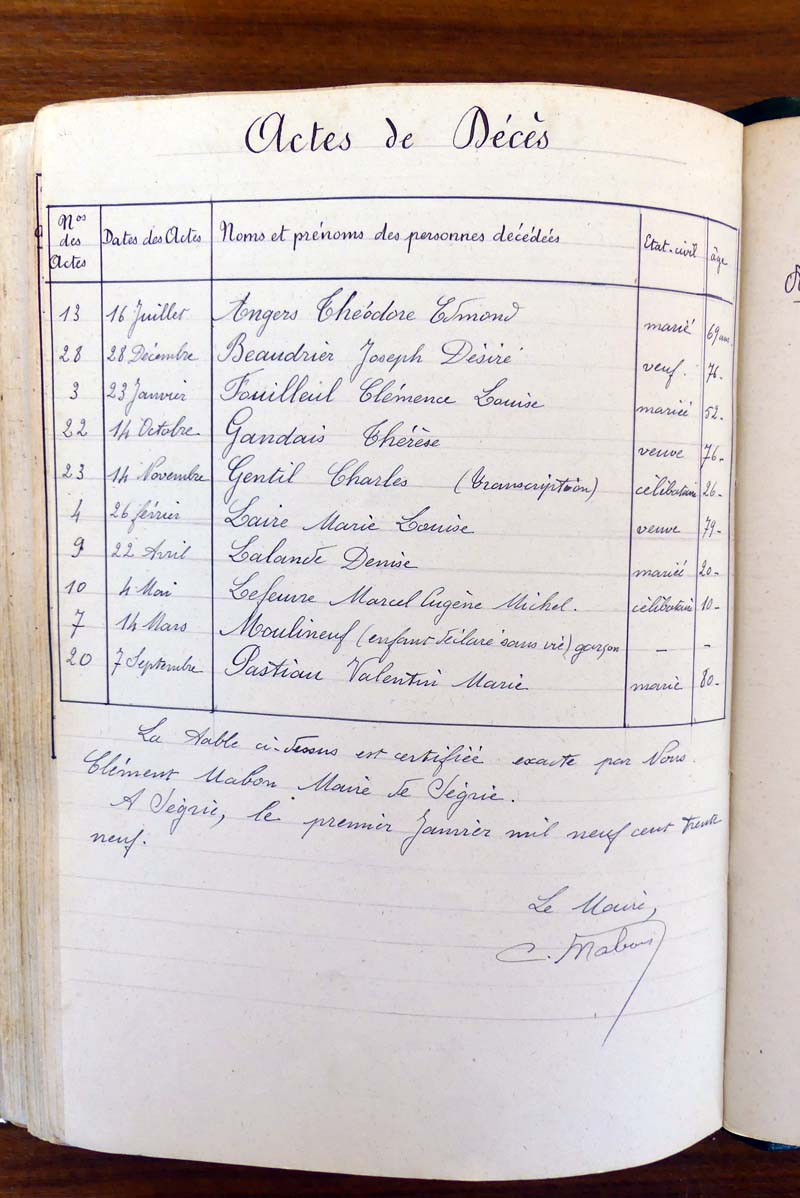 Actes de Décès
Nos des Actes Dates des Actes Noms et prénoms des personnes décédées Etat-civil âge
13 16 Juillet Angers Théodore Edmond marié 69 ans.
28 28 Décembre Beaudrier Joseph Désiré veuf. 76-
3 23 Janvier Fouilleul Clémence Louise mariée 52-
22 14 Octobre Gandais Thérèse veuve 76-
23 14 Novembre Gentil Charles (transcription) célibataire 26-
4 26 février Laire Marie Louise veuve 79-
9 22 Avril Lalande Denise mariée 20-
10 4 Mai Lefeuvre Marcel Eugène Michel. célibataire 10-
7 14 Mars Moulineuf (enfant déclaré sans vie) garçon - -
20 7 Septembre Pastiau Valentin Marie marié 80-
La table ci-dessus est certifiée exacte par Nous
Clément Mabon Maire de Ségrie.
A Ségrie, le premier Janvier mil neuf cent trente
neuf.
Le Maire,
C. Mabon